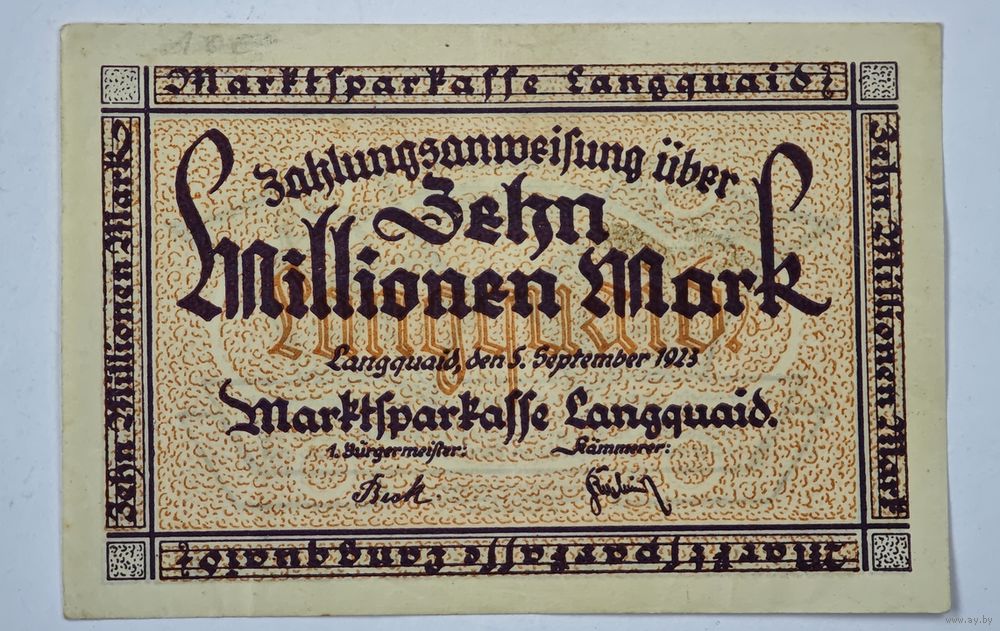 Marktsparkasse Langquaid
Zehn Millionen Mark
Zehn Millionen Mark
Zahlungsanweisung über
Zehn
Millionen Mark
Langquaid.
Langquaid, den 5. September 1923
Marktsparkasse Langquaid.
1. Bürgermeister:
Kämmerer:
Marktsparkasse Langquaid
www.ay.by